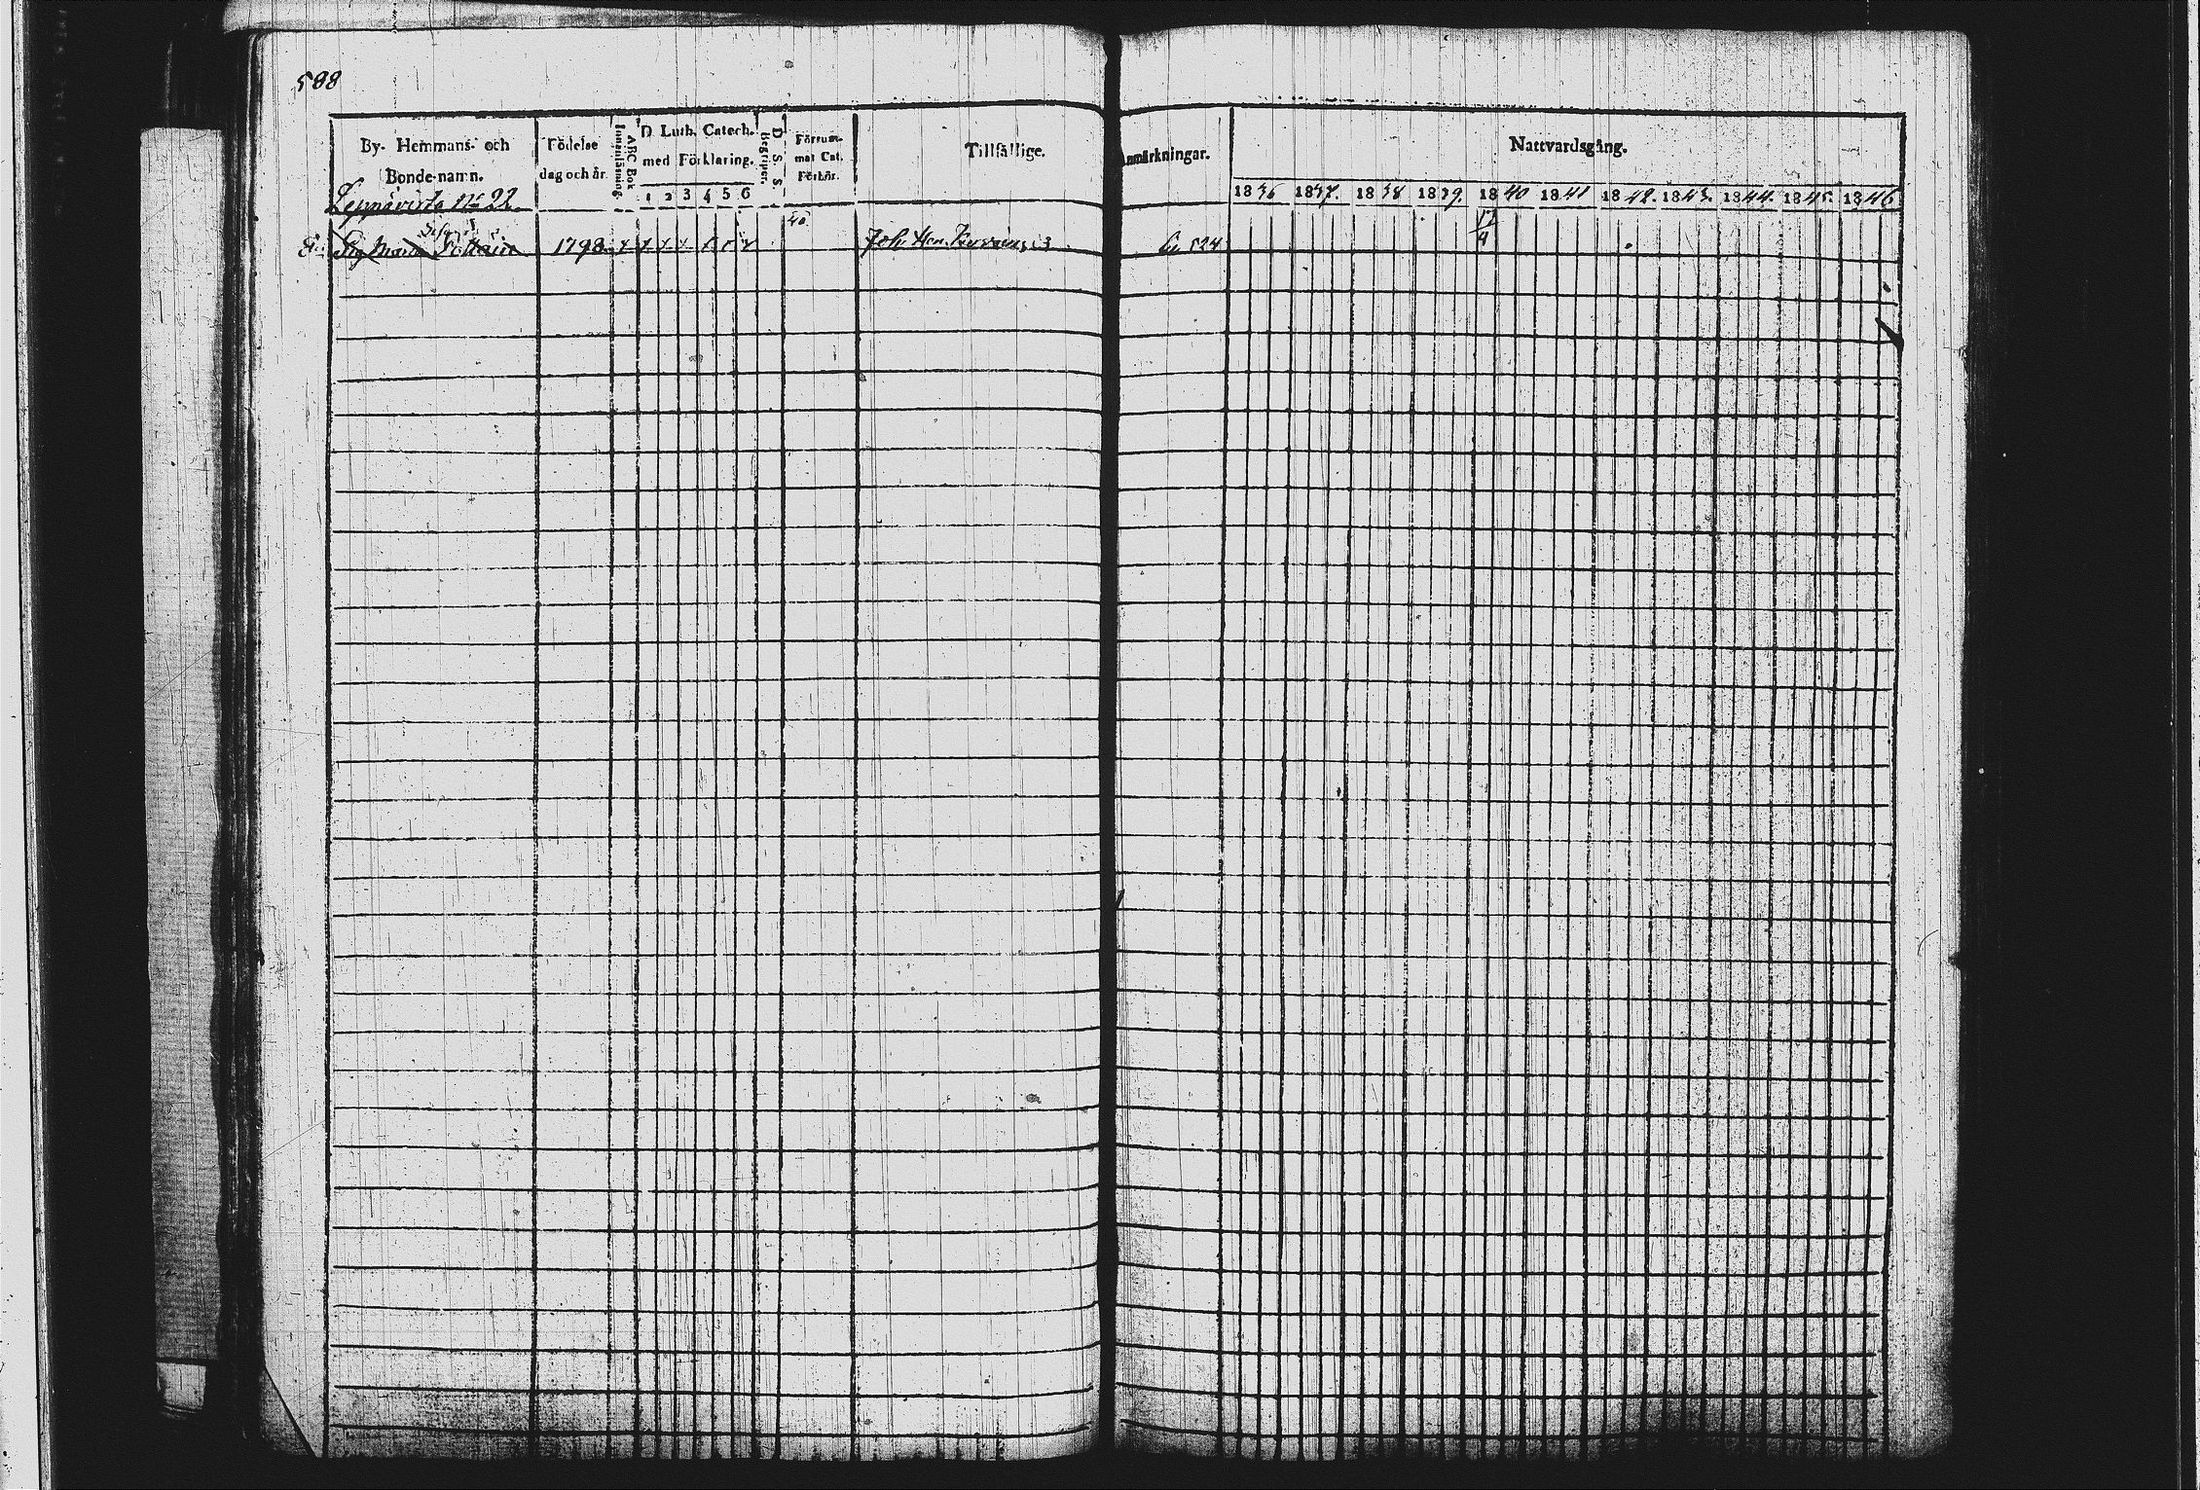 588
By- Hemmans- och Bonde-namn.
Födelse dag och år.
ABC Bok Innanläsning.
D. Luth. Catech. med Förklaring.
1 2 3 4 5 6
Begriper.
D. S. S.
Försummat Cat. Förhör.
Tillfällige.
Anmärkningar.
Nattvardsgång.
1836 1837. 1838 1839. 1840 1841 1842. 1843. 1844. 1845. 1846
Leppävirta No 22.
40
17/4
1798
Joh
524